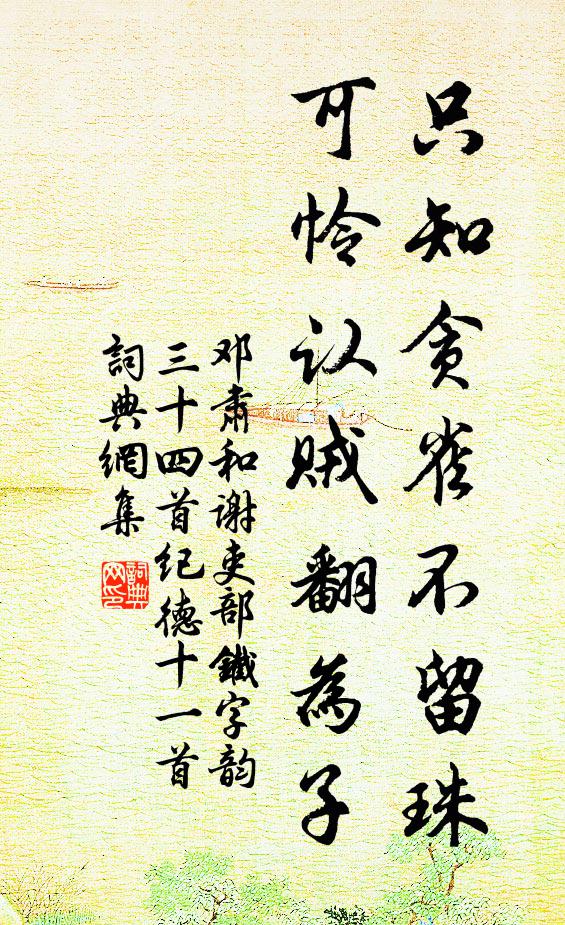 只知贪雀不留珠
可怜认贼翻为子
邓肃和谢吏部鐵字韵
三十四首纪德十一首
詞典網集
詞典网印